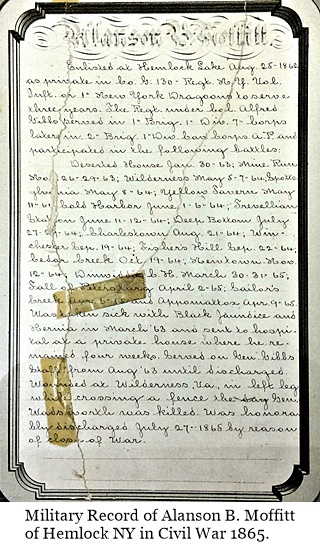 Alanson B Moffitt
Enlisted at Hemlock Lake Aug. 25-1862
as private in Co. G. 130- Regt. N.Y. Vol.
Inft. or 1st New York Dragoons to serve
three years. The Regt. under Col. Alfred
Gibbs served in 1-Brig. 1-Div. 7-corps
later in 2-Brig. 1-Div. Cav. corps A.P. and
participated in the following battles.
Deserted House Jan. 30-63; Mine Run
Nov. 26-29-63; Wilderness May 5-7-64; Spotts-
ylvania May 8-64; Yellow Tavern May
11-64; Cold Harbor June 1-6-64; Trevellian
Station June 11-12-64; Deep Bottom July
27-29-64; Charlestown Aug. 21-64; Win-
chester Sep. 19-64; Fisher's Hill Sep. 22-64;
Cedar Creek Oct. 19-64; Newtown Nov.
12-64; Dinwiddie C.H. March 30-31-65;
Fall of Petersburg April 2-65; Sailor's
Creek Apr. 6-65 and Appomattox Apr. 9-65.
Was taken sick with Black Jaundice and
Hernia in March '63 and sent to hospi-
tal at a private house where he re-
mained four weeks. Served on Gen. Gibbs
Staff from Aug '63 until discharged.
Wounded at Wilderness, Va., in left leg
while crossing a fence the day Gen.
Wadsworth was killed. Was honora-
bly discharged July 27-1865 by reason
of close of War.
Military Record of Alanson B. Moffitt
of Hemlock NY in Civil War 1865.